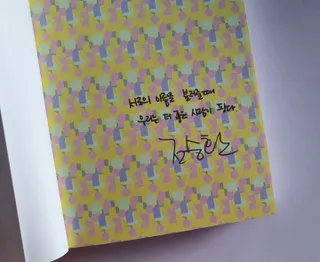 서로의 이름을 불러줄 때
우리는 더 좋은 사람이 된다.
김승환